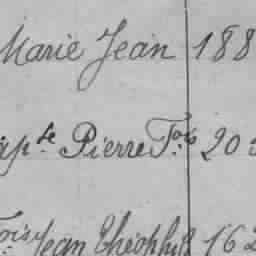 Marie Jean 188
apte Pierre Fois 20
Fois Jean Théophile 162